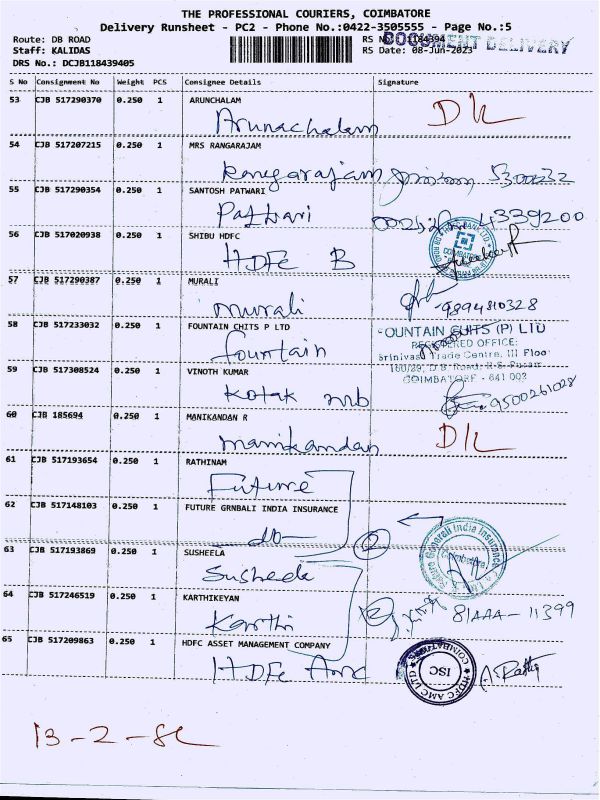 THE PROFESSIONAL COURIERS, COIMBATORE
Delivery Runsheet - PC2 - Phone No.:0422-3505555 - Page No.:5
Route: DB ROAD RS No.: 1184394 DOCUMENT DELIVERY
Staff: KALIDAS RS Date: 08-Jun-2023
DRS No.: DCJB118439405
S No Consignment No Weight PCS Consignee Details Signature
53 CJB 517290370 0.250 1 ARUNCHALAM
Arunachalam
54 CJB 517207215 0.250 1 MRS RANGARAJAM
Rangarajam
55 CJB 517290354 0.250 1 SANTOSH PATWARI
Patwari 4339200
56 CJB 517020938 0.250 1 SHIBU HDFC
HDFC B
57 CJB 517290387 0.250 1 MURALI
murali 9894810328
58 CJB 517233032 0.250 1 FOUNTAIN CHITS P LTD
fountain
OUNTAIN CHITS (P) LTD
REGISTERED OFFICE:
Srinivas Trade Centre, III Floo
COIMBATORE - 641 002
59 CJB 517308524 0.250 1 VINOTH KUMAR
Kotak mb 9500261028
60 CJB 185694 0.250 1 MANIKANDAN R
Manikandan
61 CJB 517193654 0.250 1 RATHINAM
Future
62 CJB 517148103 0.250 1 FUTURE GRNBALI INDIA INSURANCE
do
2
63 CJB 517193869 0.250 1 SUSHEELA
Susheela
64 CJB 517246519 0.250 1 KARTHIKEYAN
Karthi 81AAA-11399
65 CJB 517209863 0.250 1 HDFC ASSET MANAGEMENT COMPANY
HDFC Amc
HDFC AMC LTD COIMBATORE ISC
13-2-